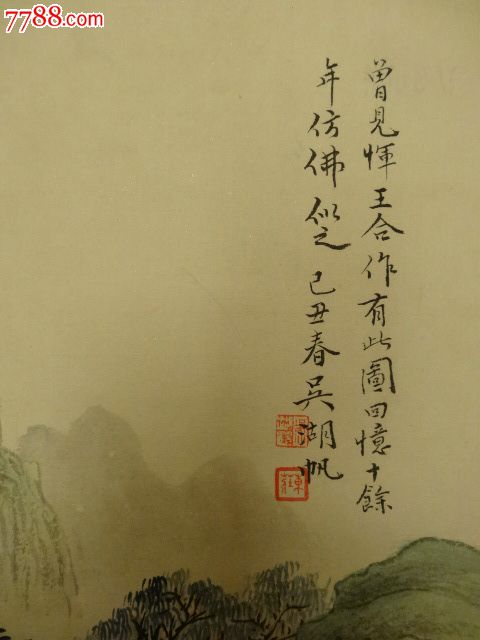 7788.com
曾見惲王合作有此圖回憶十餘
年仿佛似之己丑春吳湖帆